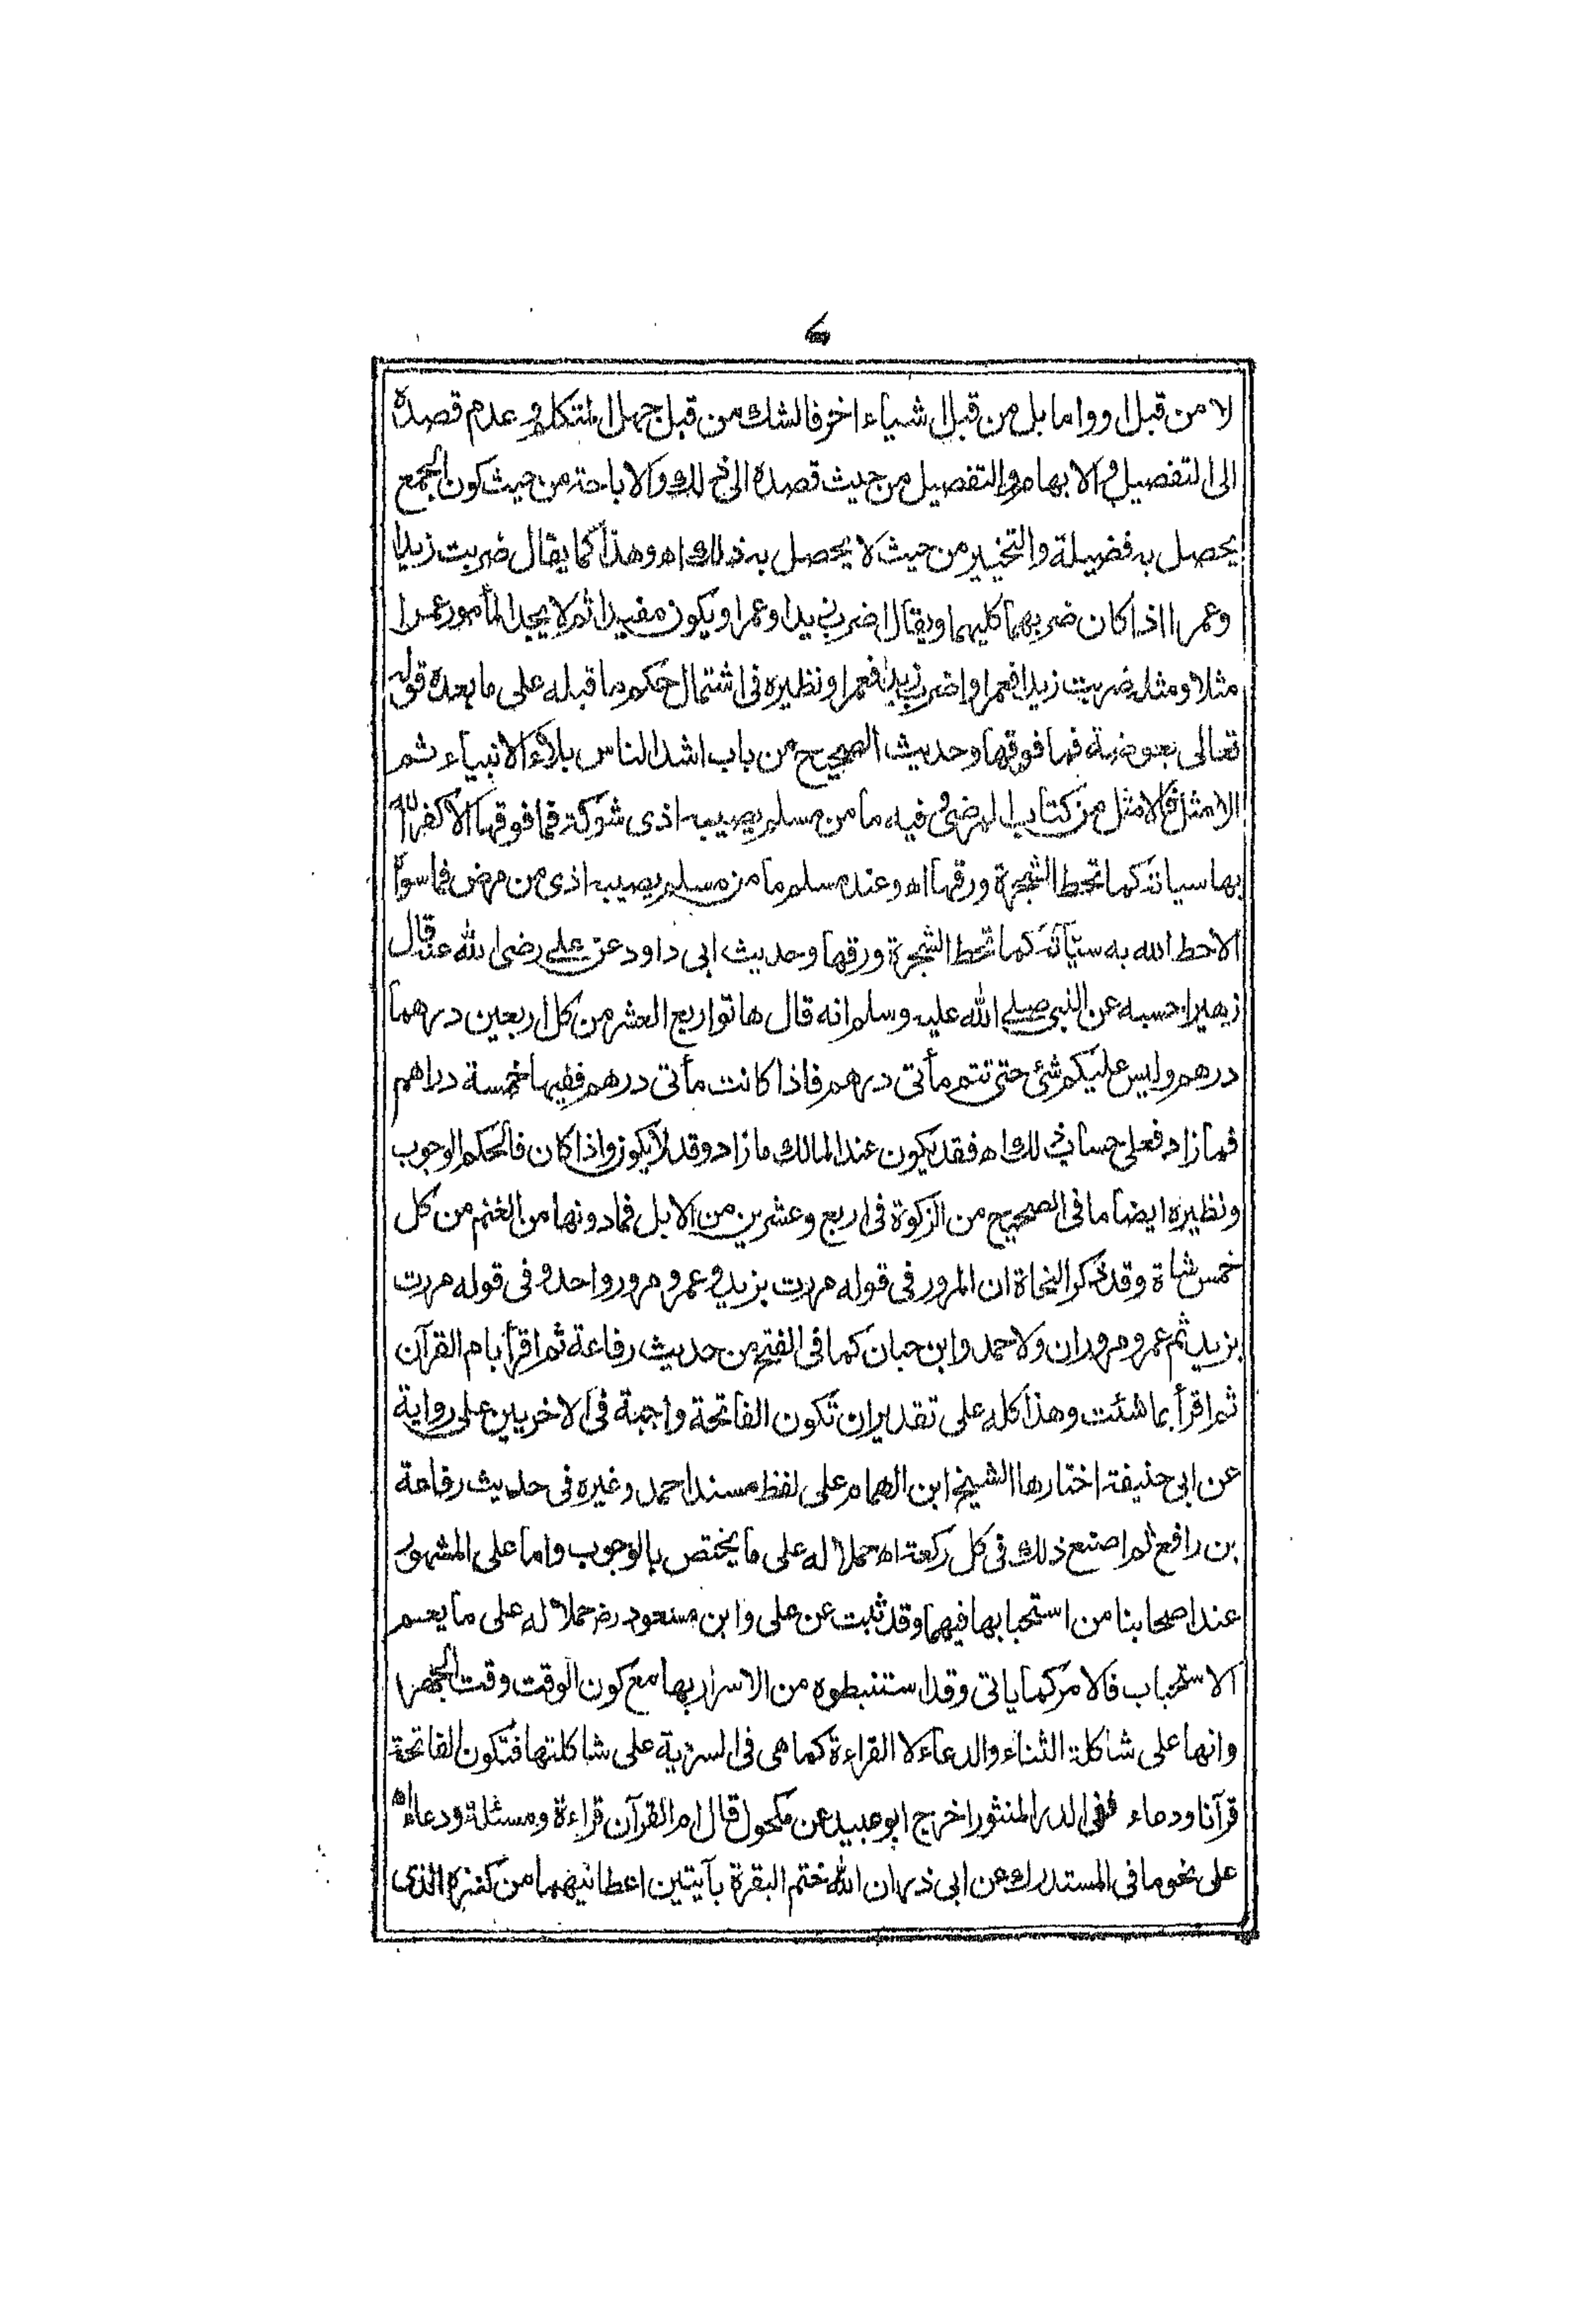 لا من قبل او واما بل من قبل اشياء اخر فالشك من قبل جهل المتكلم وعدم قصده
الى التفصيل والابهام والتفصيل من حيث قصده الى ذلك والاباحة من حيث كون الجمع
يحصل به فضيلة والتخيير من حيث لا يحصل به ذلك اه وهذا كما يقال ضربت زيدا
وعمرا اذا كان ضربهما كليهما ويقال اضرب زيدا وعمرا ويكون مفيدا ثم لا يجد المأمور عمرا
مثلا ومثل ضربت زيدا فعمرا واضرب زيدا فعمرا ونظيره فى اشتمال حكم ما قبله على ما بعده قوله
تعالى بعوضة فما فوقها وحديث الصحيح من باب اشد الناس بلاء الانبياء ثم
الامثل فالامثل من كتاب المرضى وفيه ما من مسلم يصيبه اذى شوكة فما فوقها الا كفر الله
بها سيأته كما تحط الشجرة ورقها اه وعند مسلم ما من مسلم يصيبه اذى من مرض فما سواه
الا حط الله به سيّآته كما تحط الشجرة ورقها وحديث ابى داود عن على رضى الله عنه قال
زهير احسبه عن النبى صلے الله عليه وسلم انه قال هاتوا ربع العشر من كل اربعين درهما
درهم وليس عليكم شئ حتى تتم مأتى درهم فاذا كانت مأتى درهم ففيها خمسة دراهم
فما زاد فعلى حساب ذلك اه فقد يكون عند المالك ما زاد وقد لا يكون واذا كان فالحكم الوجوب
ونظيره ايضا ما فى الصحيح من الزكوة فى اربع وعشرين من الابل فما دونها من الغنم من كل
خمس شاة وقد ذكر النحاة ان المرور فى قوله مررت بزيد وعمرو مرور واحد وفى قوله مررت
بزيد ثم عمرو مروران ولاحمد وابن حبان كما فى الفتح من حديث رفاعة ثم اقرأ بام القرآن
ثم اقرأ بما شئت وهذا كله على تقدير ان تكون الفاتحة واجبة فى الاخريين على رواية
عن ابى حنيفة اختارها الشيخ ابن الهمام على لفظ مسند احمد وغيره فى حديث رفاعة
بن رافع ثم اصنع ذلك فى كل ركعة اه حملا له على ما يختص بالوجوب واما على المشهور
عند اصحابنا من استحبابها فيهما وقد ثبت عن على وابن مسعود رضـ حملا له على ما يعم
الاستحباب فالامر كما ياتى وقد استنبطوه من الاسرار بها مع كون الوقت وقت الجهر
وانها على شاكلة الثناء والدعاء لا القراءة كما هى فى السرية على شاكلتها فتكون الفاتحة
قرآنا ودعاء ففى الدر المنثور اخرج ابو عبيد عن مكحول قال ام القرآن قراءة ومسئلة ودعاء اه
على نحو ما فى المستدرك عن ابى ذر ان الله ختم البقرة بآيتين اعطانيهما من كنزه الذى